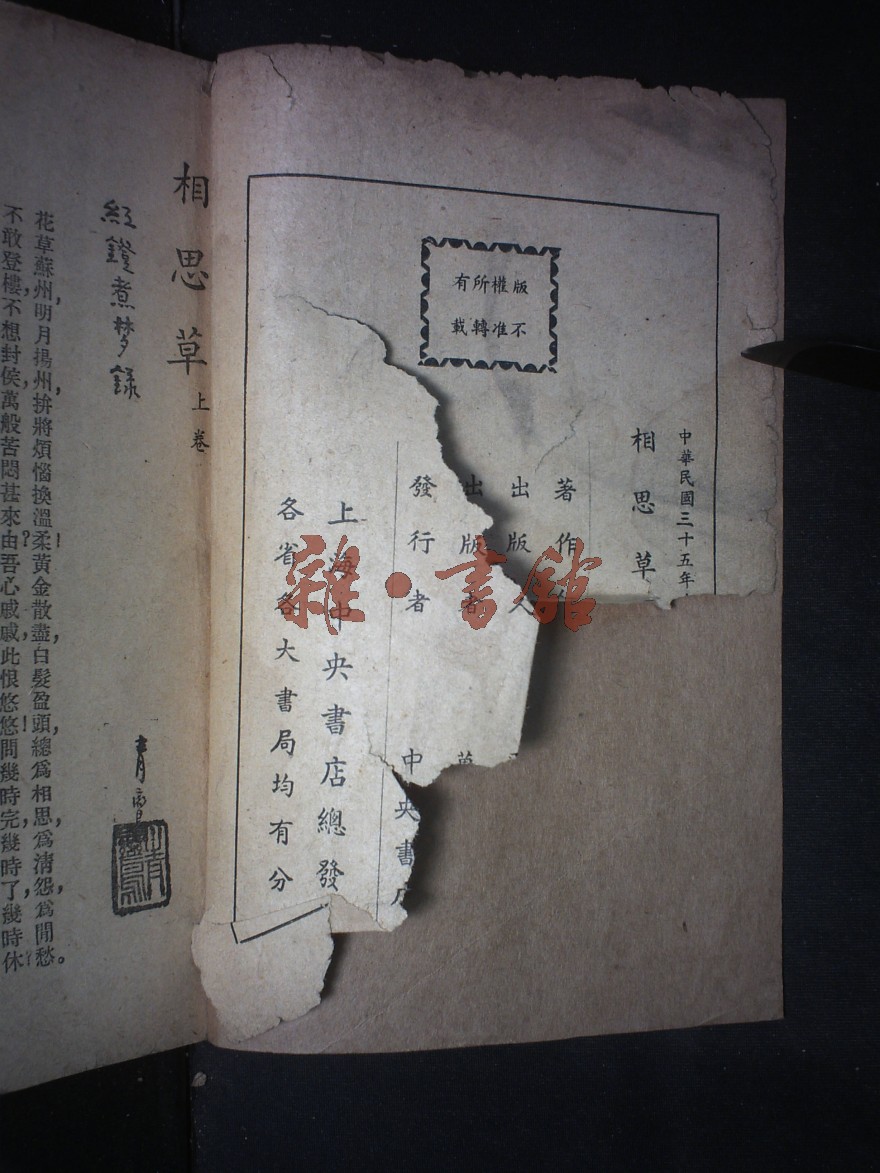 版權所有
不准轉載
中華民國三十五年
相思草
著作
出版人
出版者
發行者 中央書店
上海中央書店總發
各省各大書局均有分
雜·書館
相思草 上卷
紅鐙煮夢錄
花草蘇州,明月揚州,拚將煩惱換溫柔!黃金散盡,白髮盈頭,總為相思,為清怨,為閒愁。
不敢登樓,不想封侯,萬般苦悶甚來由?吾心戚戚,此恨悠悠!問幾時完,幾時了,幾時休?